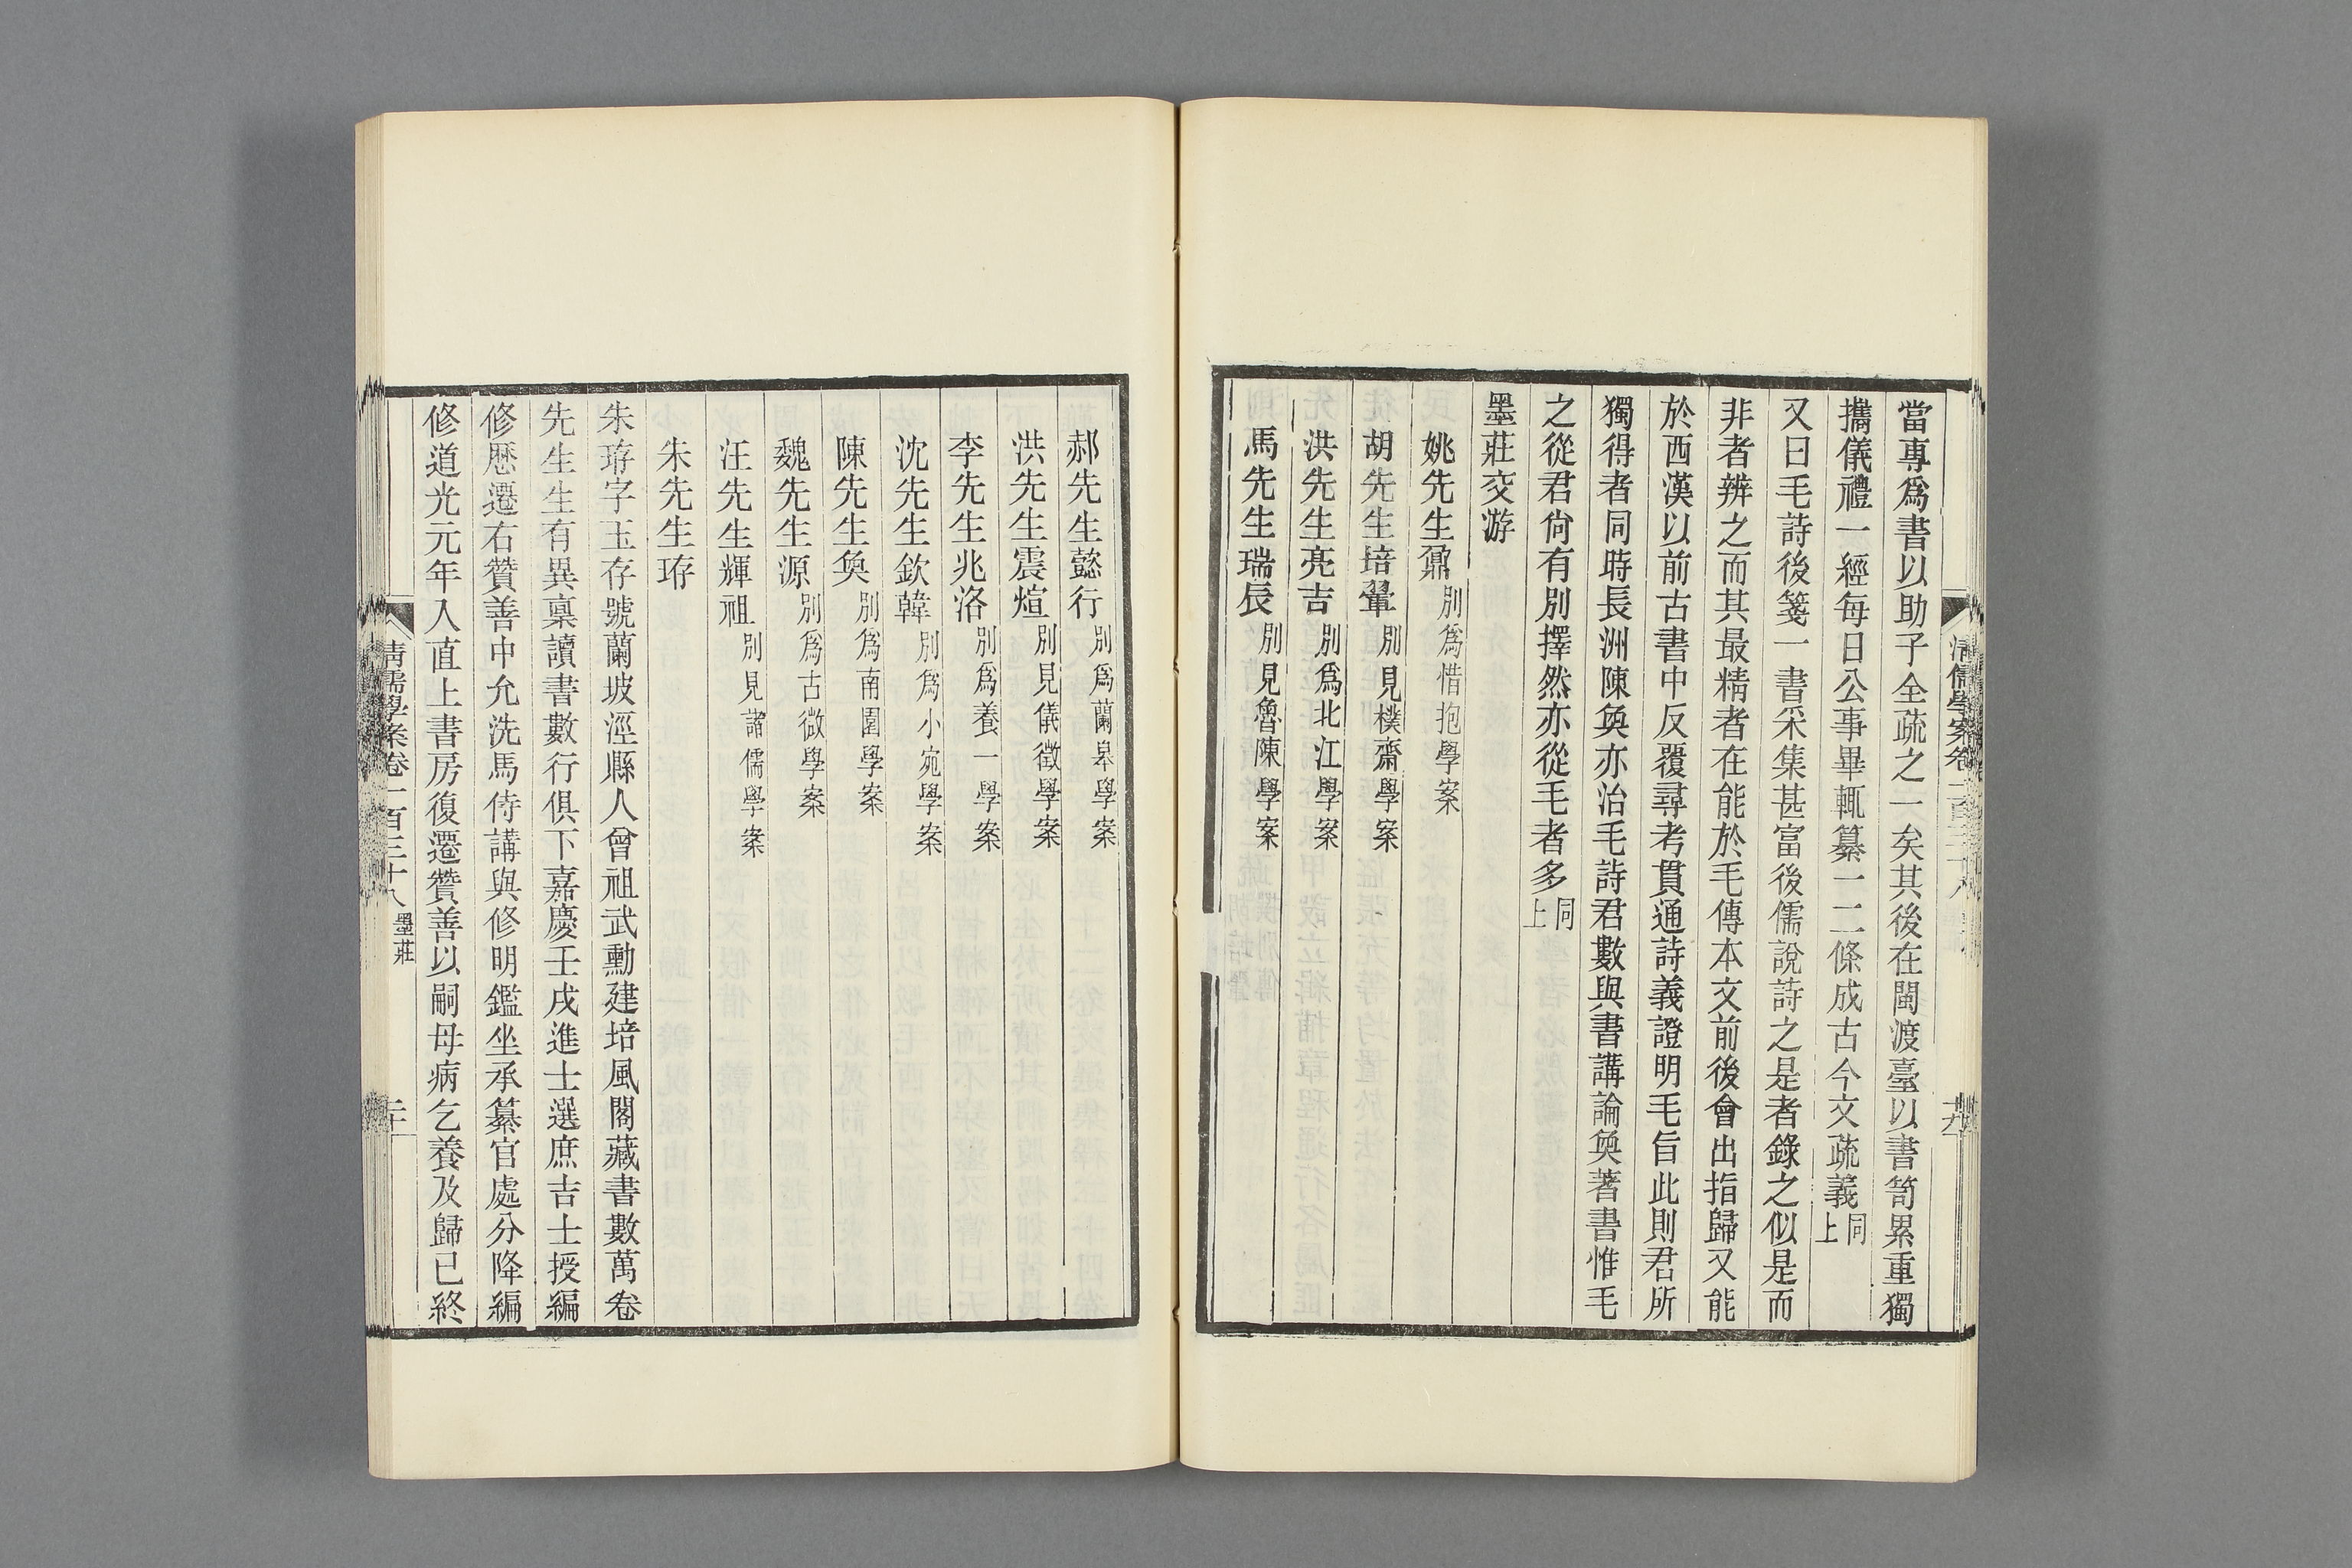 當專爲書以助子全疏之一矣其後在閩渡臺以書笥累重獨
攜儀禮一經每日公事畢輒纂一二條成古今文疏義同上
又曰毛詩後箋一書采集甚富後儒說詩之是者錄之似是而
非者辨之而其最精者在能於毛傳本文前後會出指歸又能
於西漢以前古書中反覆尋考貫通詩義證明毛旨此則君所
獨得者同時長洲陳奐亦治毛詩君數與書講論奐著書惟毛
之從君尙有別擇然亦從毛者多同上
墨莊交游
姚先生鼐別爲惜抱學案
胡先生培翬別見樸齋學案
洪先生亮吉別爲北江學案
馬先生瑞辰別見魯陳學案
清儒學案卷一百三十八
郝先生懿行別爲蘭皋學案
洪先生震煊別見儀徵學案
李先生兆洛別爲養一學案
沈先生欽韓別爲小宛學案
陳先生奐別爲南園學案
魏先生源別爲古微學案
汪先生輝祖別見諸儒學案
朱先生珔
朱珔字玉存號蘭坡涇縣人曾祖武勳建培風閣藏書數萬卷
先生生有異稟讀書數行俱下嘉慶壬戌進士選庶吉士授編
修歷遷右贊善中允洗馬侍講與修明鑑坐承纂官處分降編
修道光元年入直上書房復遷贊善以嗣母病乞養及歸已終
清儒學案卷一百三十八 墨莊